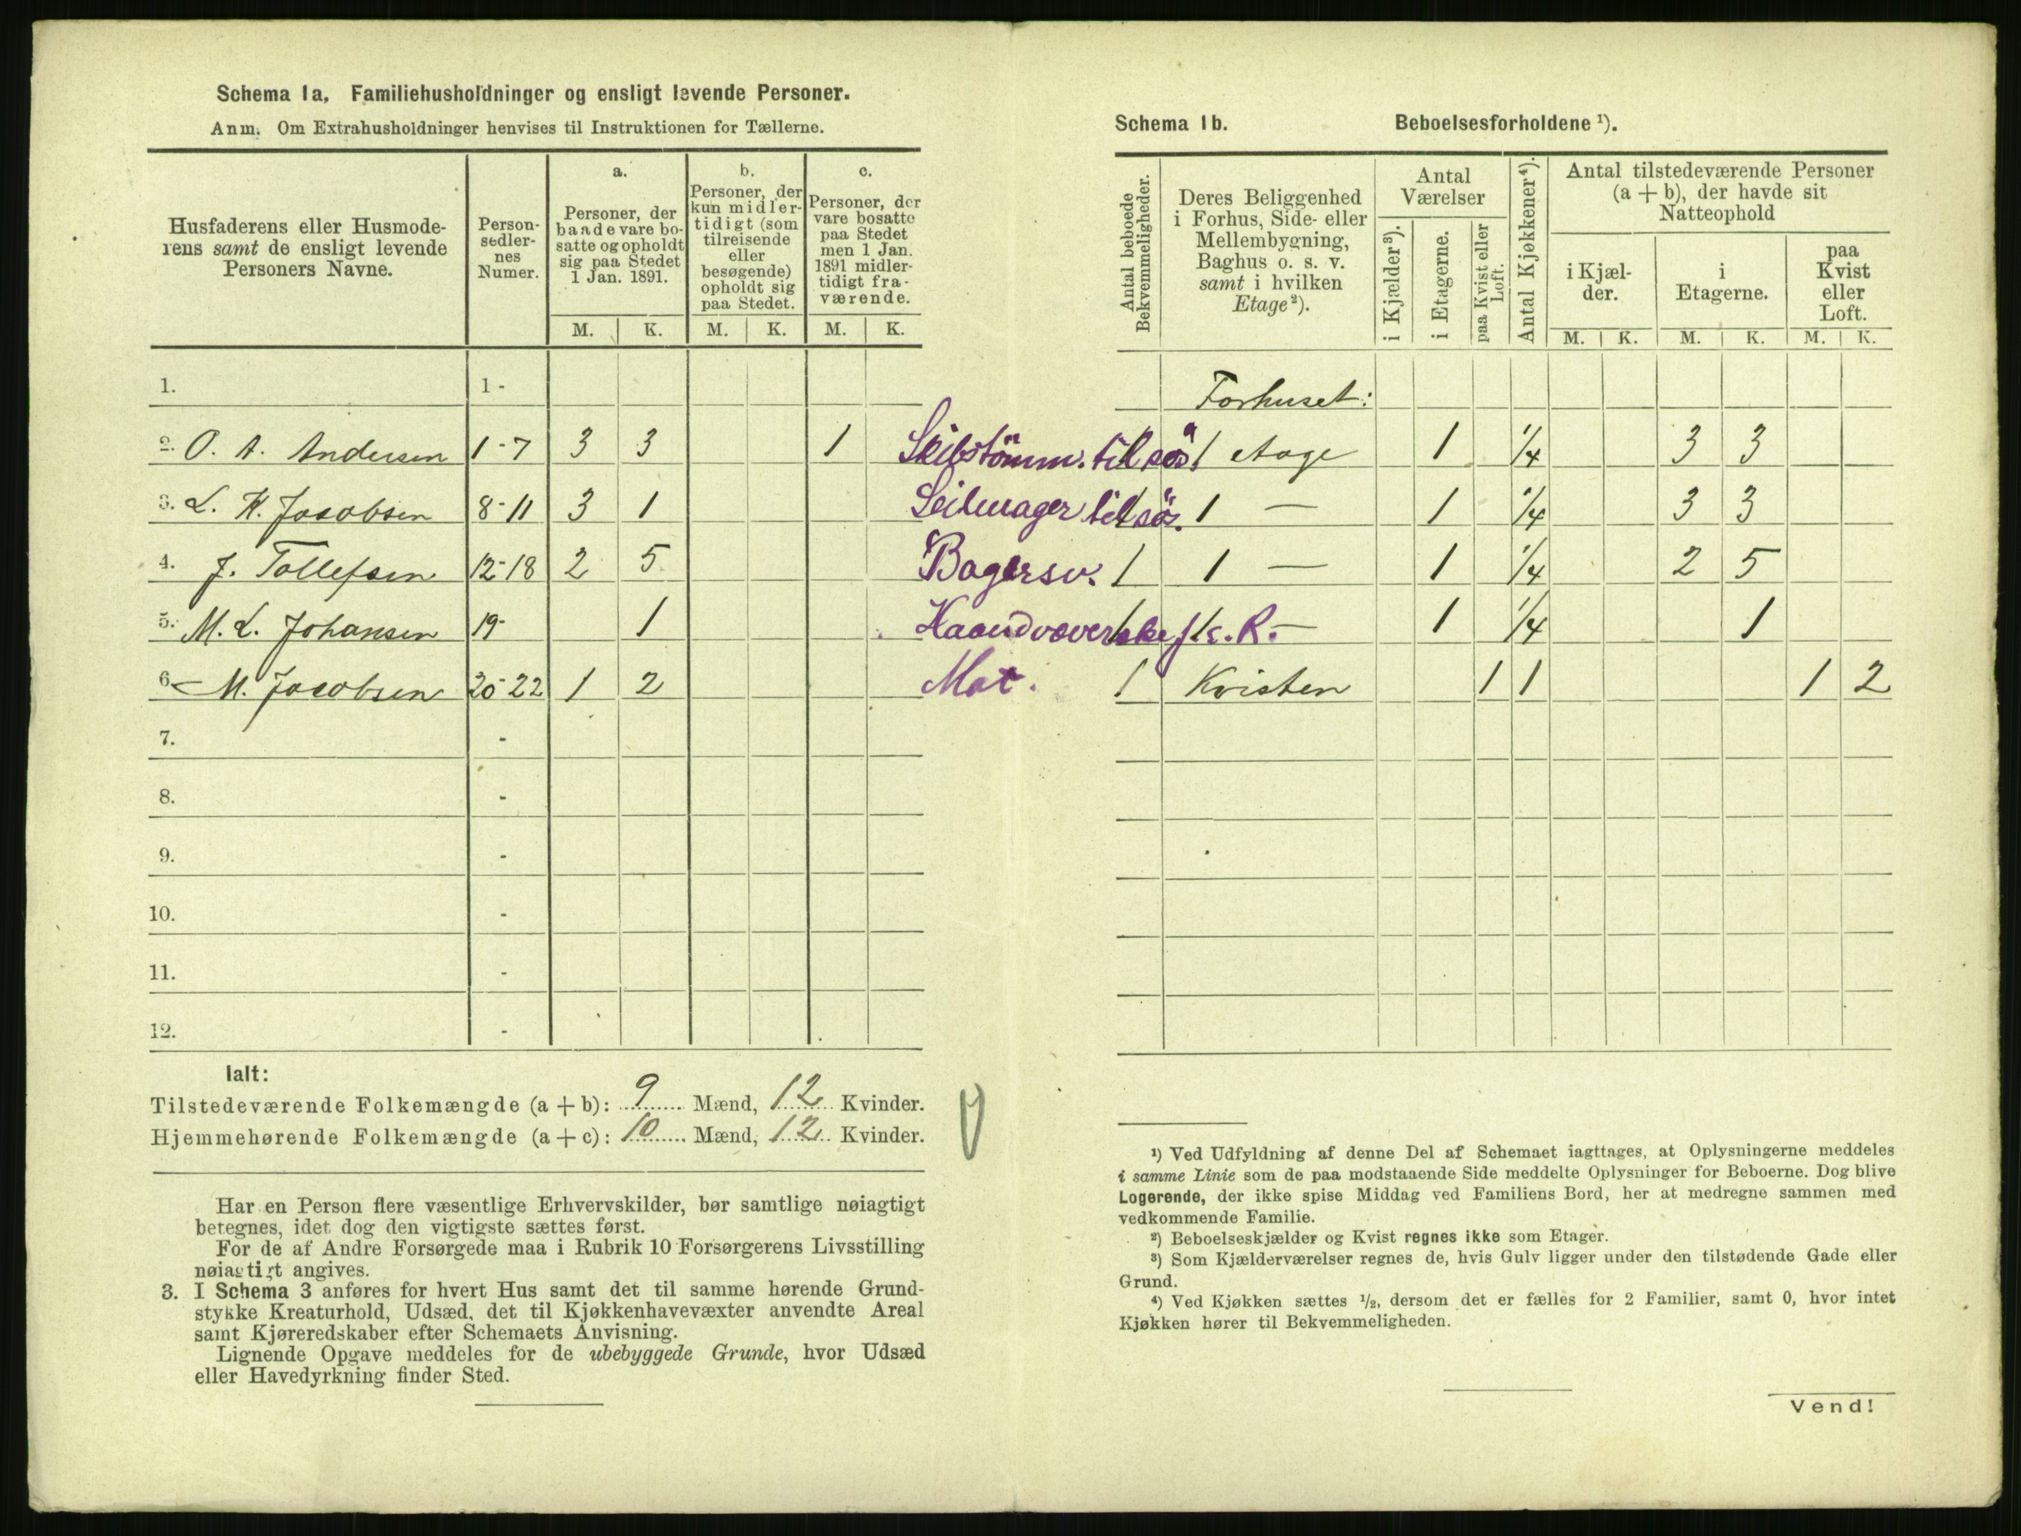 Schema 1a, Familiehusholdninger og ensligt levende Personer.
Anm. Om Extrahusholdninger henvises til Instruktionen for Tællerne.
Husfaderens eller Husmoderens samt de ensligt levende Personers Navne.
Personsedlernes Numer.
a. Personer, der baade vare bosatte og opholdt sig paa Stedet 1 Jan. 1891.
b. Personer, der kun midlertidigt (som tilreisende eller besøgende) opholdt sig paa Stedet.
c. Personer, der vare bosatte paa Stedet men 1 Jan. 1891 midlertidigt fraværende.
M. K. M. K. M. K.
1. 1 -
2. O. A. Andersen 1-7 3 3 1
3. L. H. Jacobsen 8-11 3 1
4. J. Tollefsen 12-18 2 5
5. M. L. Johansen 19- 1
6. M. Jacobsen 20-22 1 2
7. -
8. -
9. -
10. -
11. -
12. -
Ialt:
Tilstedeværende Folkemængde (a + b): 9 Mænd, 12 Kvinder.
Hjemmehørende Folkemængde (a + c): 10 Mænd, 12 Kvinder.
Har en Person flere væsentlige Erhvervskilder, bør samtlige nøiagtigt
betegnes, idet dog den vigtigste sættes først.
For de af Andre Forsørgede maa i Rubrik 10 Forsørgerens Livsstilling
nøiagtigt angives.
3. I Schema 3 anføres for hvert Hus samt det til samme hørende Grund-
stykke Kreaturhold, Udsæd, det til Kjøkkenhavevæxter anvendte Areal
samt Kjøreredskaber efter Schemaets Anvisning.
Lignende Opgave meddeles for de ubebyggede Grunde, hvor Udsæd
eller Havedyrkning finder Sted.
Schema 1b. Beboelsesforholdene ¹).
Antal beboede Bekvemmeligheder.
Deres Beliggenhed i Forhus, Side- eller Mellembygning, Baghus o. s. v. samt i hvilken Etage²).
Antal Værelser
i Kjælder³).
i Etagerne.
paa Kvist eller Loft.
Antal Kjøkkener⁴).
Antal tilstedeværende Personer (a + b), der havde sit Natteophold
i Kjælder.
i Etagerne.
paa Kvist eller Loft.
M. K. M. K. M. K.
Forhuset:
Seilstömm. til sös 1 1 Etage 1 1/4 3 3
Seilmager til sös. 1 1 — 1 1/4 3 3
Bagersv. 1 1 — 1 1/4 2 5
Haandvæverske f. R. 1 1 — 1 1/4 1
Mat. 1 Kvisten 1 1 1 2
¹) Ved Udfyldning af denne Del af Schemaet iagttages, at Oplysningerne meddeles
i samme Linie som de paa modstaaende Side meddelte Oplysninger for Beboerne. Dog blive
Logerende, der ikke spise Middag ved Familiens Bord, her at medregne sammen med
vedkommende Familie.
²) Beboelseskjælder og Kvist regnes ikke som Etager.
³) Som Kjælderværelser regnes de, hvis Gulv ligger under den tilstødende Gade eller
Grund.
⁴) Ved Kjøkken sættes ½, dersom det er fælles for 2 Familier, samt 0, hvor intet
Kjøkken hører til Bekvemmeligheden.
Vend!